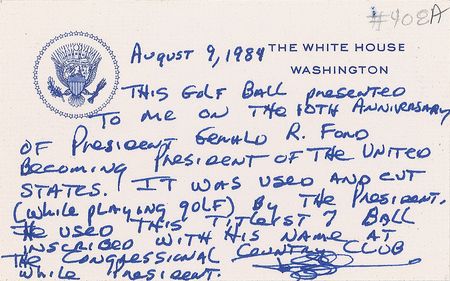 #408A
August 9, 1984 THE WHITE HOUSE
WASHINGTON
THIS GOLF BALL presented
TO ME ON THE 10TH ANNIVERSARY
OF President Gerald R. FORD
Becoming President OF THE UNITED
STATES. IT WAS USED AND CUT
(while playing golf) By THE President.
He USED THIS TITLEIST 7 BALL
INSCRIBED WITH HIS NAME AT
THE CONGRESSIONAL COUNTRY CLUB
while President.